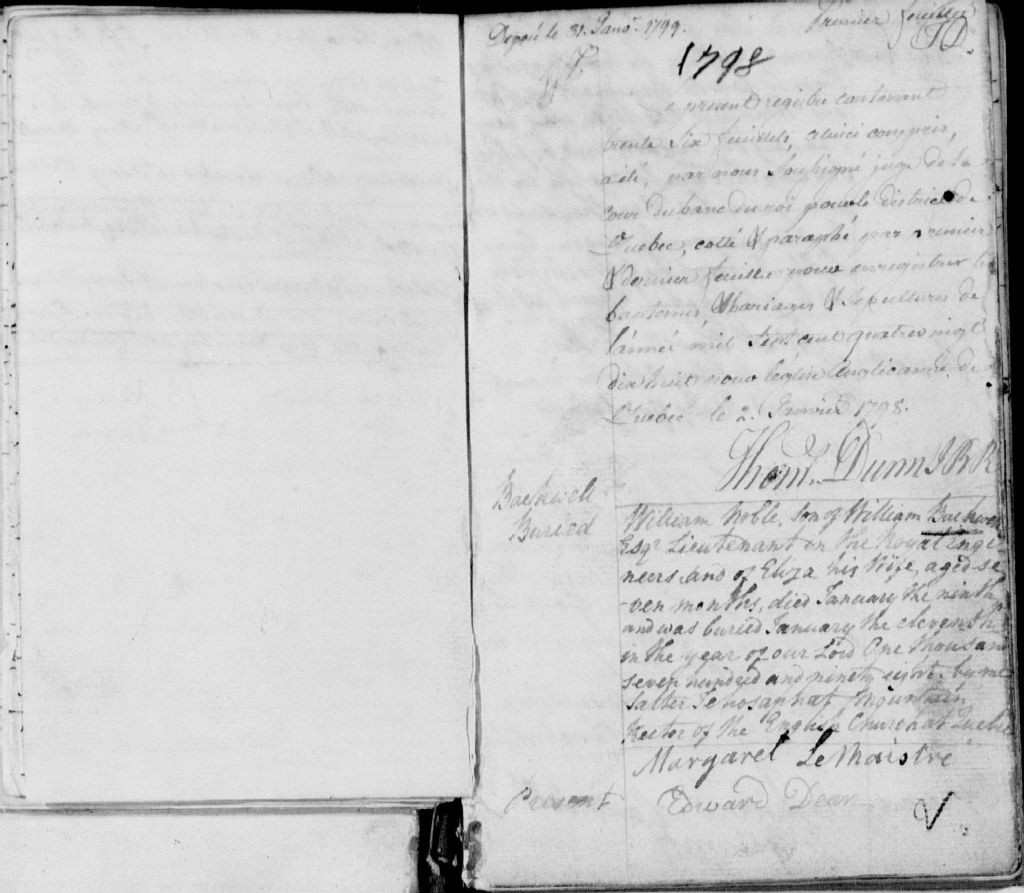 Déposé le 31. Janvr. 1799.
Premier feuillet
1798
Le present registre contenant
trente six feuillets, celuici compris,
a été, par nous soussigné juge de la
cour du banc du roi pour le district de
Quebec, cotté & paraphé par premier
& dernier feuillet pour enregistrer les
batêmes, Mariages & Sepultures de
l'année mil sept cent quatre vingt
dix huit pour l'église Anglicanne de
Quebec le 2. Janvier 1798.
Thom. Dunn J B R
Backwell
Buried
William Noble, Son of William Backwell
Esqr Lieutenant in the Royal Engi-
neers and of Eliza his Wife, aged se
-ven months, died January the ninth
and was buried January the eleventh
in the year of our Lord One thousand
seven hundred and ninety eight, by me
Salter Jehosaphat Mountain
Rector of the English Church at Quebec
Margaret LeMaistre
Present Edward Dear